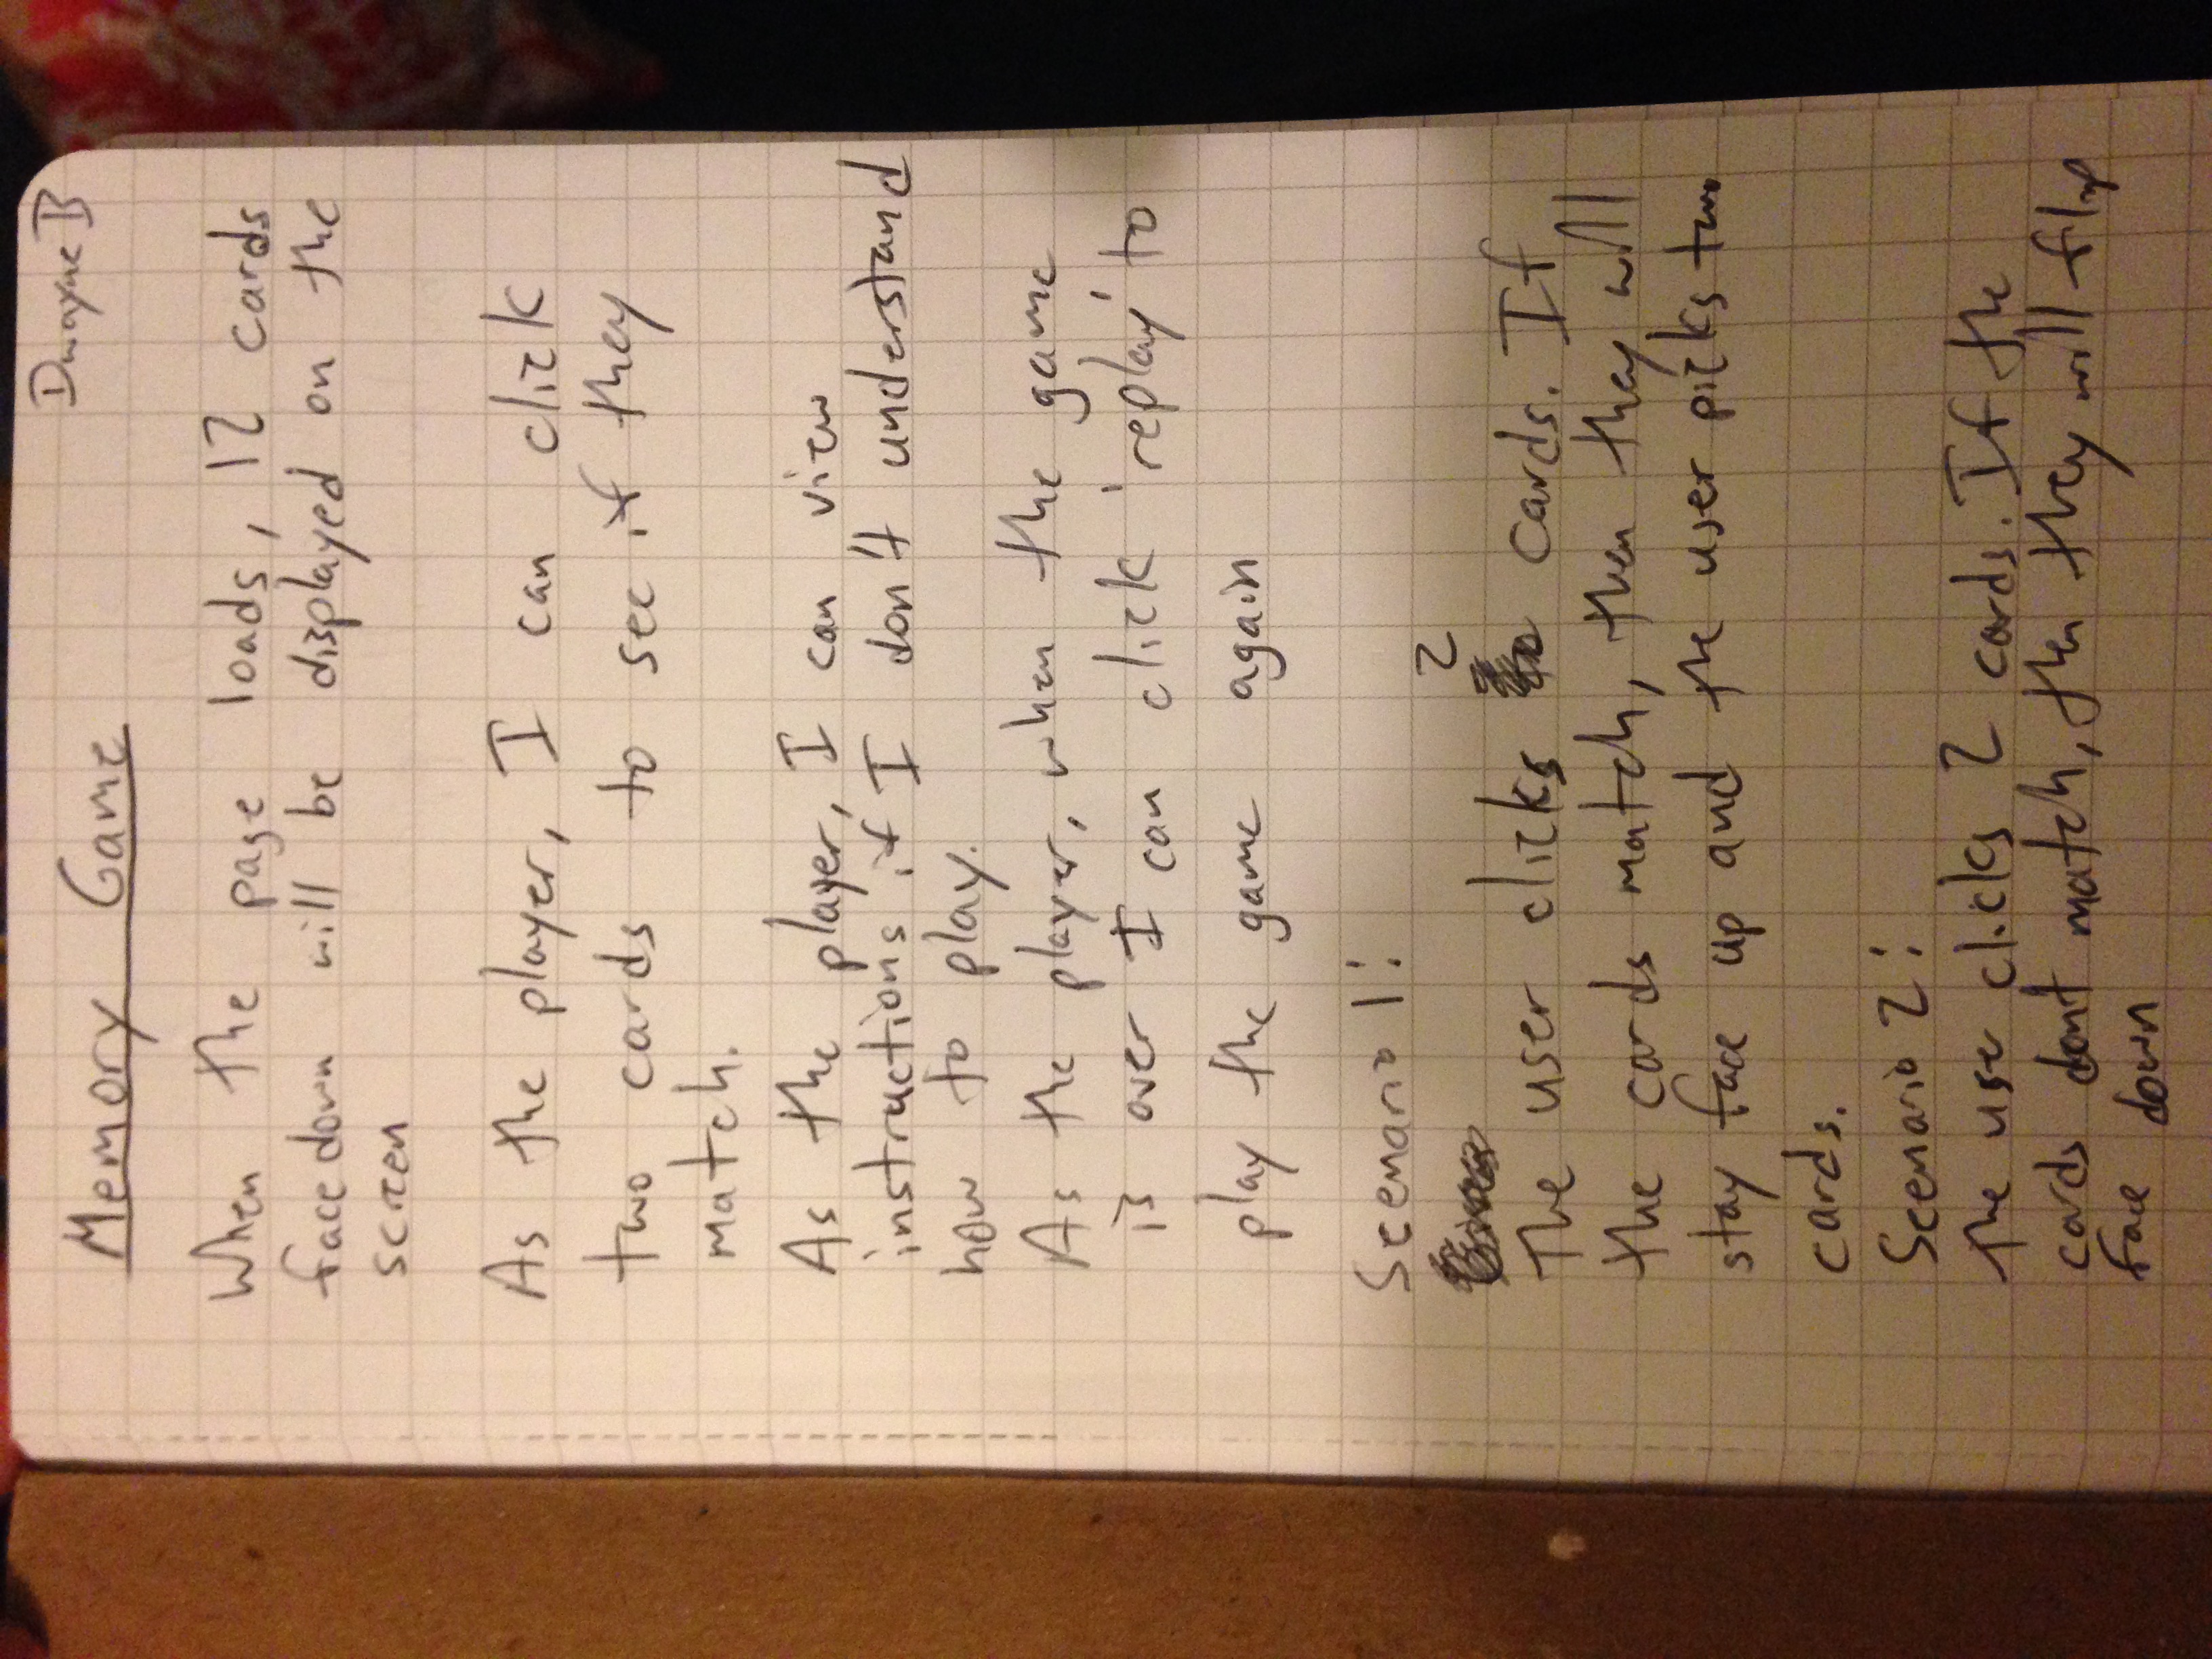 Dwayne B
Memory Game
When the page loads, 12 cards
face down will be displayed on the
screen
As the player, I can click
two cards to see if they
match.
As the player, I can view
instructions if I don't understand
how to play.
As the player, when the game
is over I can click 'replay' to
play the game again
Scenario 1:
2
The user clicks cards. If
the cards match, then they will
stay face up and the user picks two
cards.
Scenario 2:
The user clicks 2 cards. If the
cards dont match, then they will flip
face down